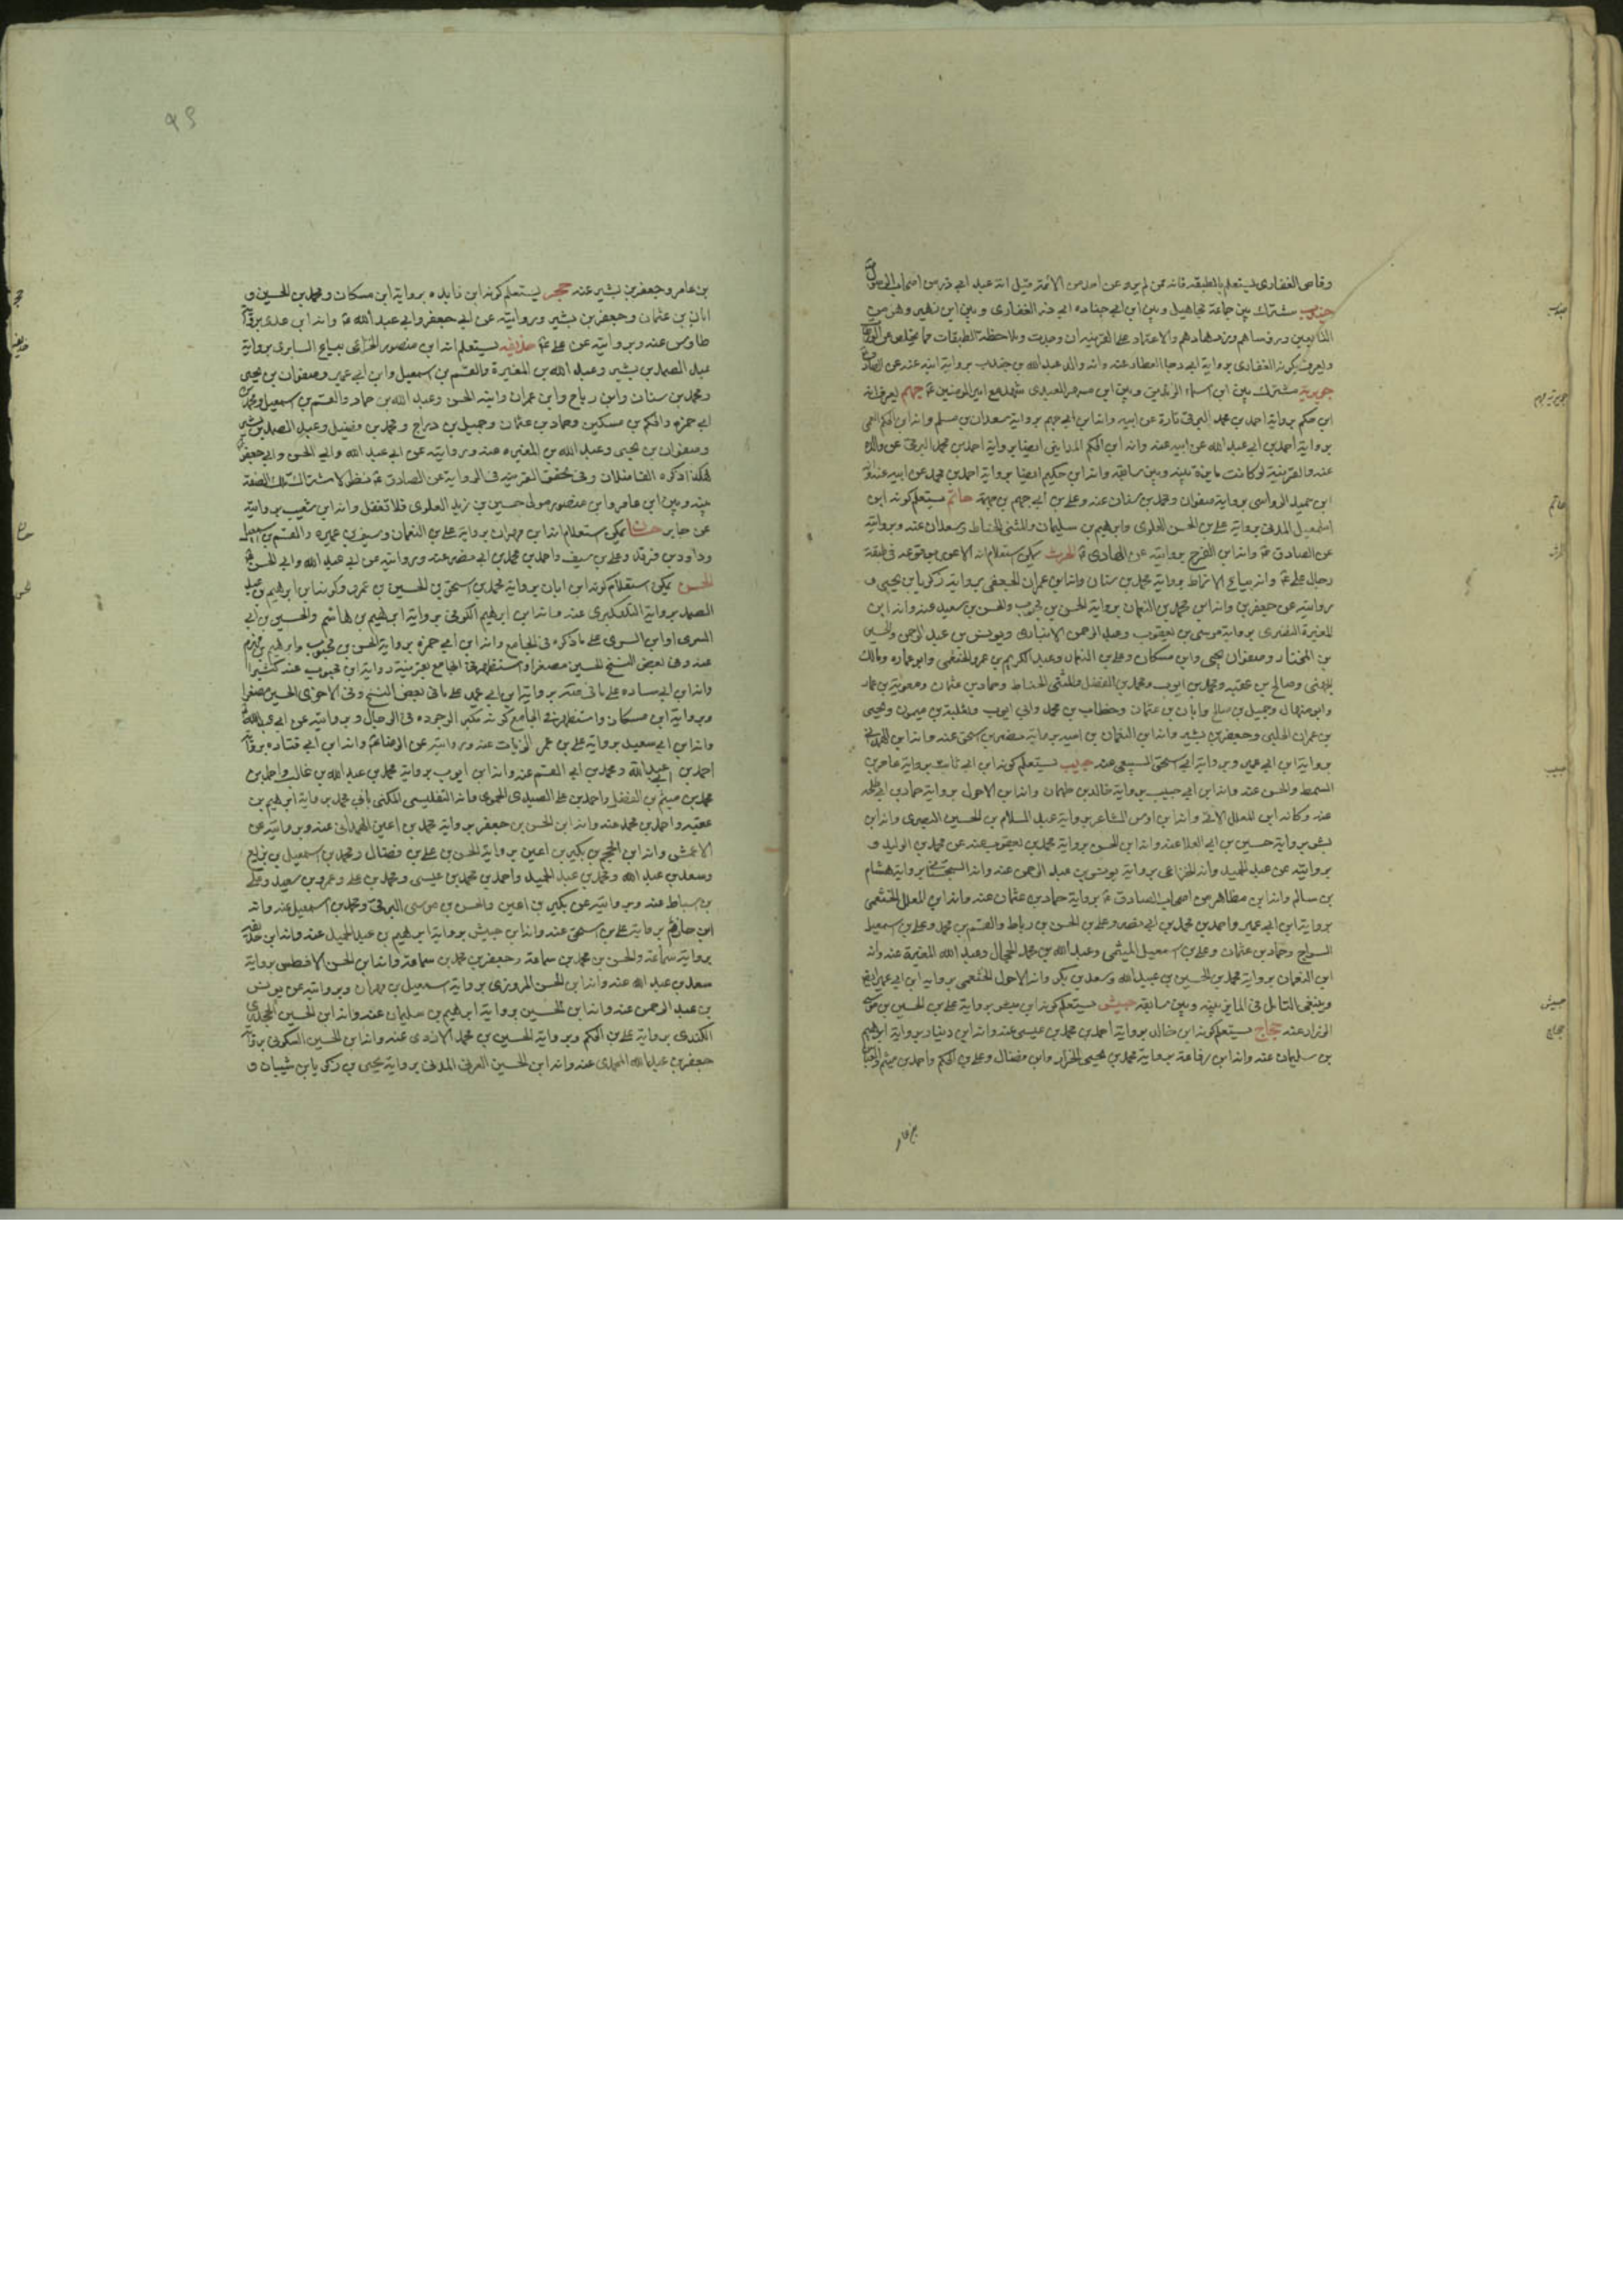 وقاص الغفاري يستعلم بالطبقه فانه ممن لم يرو عن احد من الائمة قيل انه عبد ابي ذر من اصحاب الرسول
جندب مشترك بين جماعة مجاهيل وبين ابن ابي جناده ابي ذر الغفاري وبين ابن زهير وهو من
التابعين ورؤساهم وزهادهم والاعتماد على القرينه ان وجدت وملاحظة الطبقات
ويعرف بكونه الغفاري برواية ابي رجا العطار عنه وانه والد عبد الله بن جندب برواية ابنه عنه عن الصادق
جويرية مشترك بين ابن اسماء وبين ابن مسهر العبدي شهد مع امير المؤمنين ع جهم يعرف انه
ابن حكم برواية احمد بن محمد البرقي تارة عن ابيه وانه ابن ابي جهم برواية سعدان بن مسلم وانه ابن الحكم القمي
برواية احمد بن ابي عبد الله عن ابيه عنه وانه ابن الحكم المدايني ايضا برواية احمد بن محمد البرقي عن والده
عنه والقرينة لو كانت مايزة بينه وبين سابقه وانه ابن حكيم ايضا برواية احمد بن محمد عن ابيه عنه وانه
ابن حميد الرواسي برواية صفوان ومحمد بن سنان عنه وعلي بن ابي جهم بن جهمة حاتم يستعلم كونه ابن
اسمعيل المدني برواية علي بن الحسن العلوي وابرهيم بن سليمان والمثنى الحناط وسعدان عنه وبروايته
عن الصادق ع وانه ابن الفرج بروايته عن الهادي ع الحرث يمكن استعلام انه الاعور بوقوعه في طبقة
رجال علي ع وانه بياع الانماط برواية محمد بن سنان وانه ابن عمران الجعفي برواية زكريا بن يحيى و
بروايته عن جعفر ع وانه ابن محمد بن النعمان برواية الحسن بن محبوب والحسن بن سعيد عنه وانه ابن
المغيرة النصري برواية موسى بن يعقوب وعبد الرحمن الانباري ويونس بن عبد الرحمن والحسين
بن المختار وصفوان يحيى وابن مسكان وعلي بن النعمان وعبد الكريم بن عمرو الخثعمي وابو عماره ومالك
الجهني وصالح بن عقبه ومحمد بن ايوب ومحمد بن الفضل والمثنى الحناط وحماد بن عثمان ومعوية بن عمار
وابو منهال وجميل بن صالح وابان بن عثمان وخطاب بن محمد وابي ايوب وثعلبة بن ميمون ويحيى
بن عمران الحلبي وجعفر بن بشير وانه ابن النعمان بن امية برواية نضر بن اسحق عنه وانه ابن الهمداني
برواية ابن ابي عمير وبرواية ابي اسحق السبيعي عنه حبيب يستعلم كونه ابن ابي ثابت برواية عامر بن
السمط والحسن عنه وانه ابن ابي حبيب برواية خالد بن طهمان وانه ابن الاحول برواية حماد بن ابي طلحه
عنه وكانه ابن المعلل الاتي وانه ابن اوس الشاعر برواية عبد السلام بن الحسين البصري وانه ابن
بشر برواية حسين بن ابي العلا عنه وانه ابن الحسن برواية محمد بن يعقوب عنه عن محمد بن الوليد و
بروايته عن عبد الحميد وانه الخزاعي برواية يونس بن عبد الرحمن عنه وانه السجستاني برواية هشام
بن سالم وانه ابن مظاهر من اصحاب الصادق ع برواية حماد بن عثمان عنه وانه ابن المعلل الخثعمي
برواية ابن ابي عمير واحمد بن محمد بن ابي نصر وعلي بن الحسن بن رباط والقسم بن محمد وعلي بن اسمعيل
السراج وحماد بن عثمان وعلي بن اسمعيل الميثمي وعبد الله بن محمد الحجال وعبد الله المغيرة عنه وانه
ابن النعمان برواية محمد بن الحسين بن عبيد الله وسعد بن بكر وانه الاحول الخثعمي برواية ابن ابي عمير ايضا
وينبغي التامل في المايز بينه وبين سابقه حبيش يستعلم كونه ابن مبشر برواية علي بن الحسين بن موسى
الزراد عنه حجاج يستعلم كونه ابن خالد برواية احمد بن محمد بن عيسى عنه وانه ابن دينار برواية ابرهيم
بن سليمان عنه وانه ابن رفاعة برواية محمد بن يحيى الخزاز وابن فضال وعلي بن الحكم واحمد بن ميثم والعباس
بن عامر
جندب
جويريه جهم
حاتم
الحرث
حبيب
حبيش
حجاج
بن عامر وجعفر بن بشير عنه حجر يستعلم كونه ابن زايده برواية ابن مسكان ومحمد بن الحسين و
ابان بن عثمان وجعفر بن بشير وبروايته عن ابي جعفر وابي عبد الله ع وانه ابن عدي برواية
طاوس عنه وبروايته عن علي ع حذيفه يستعلم انه ابن منصور الخزاعي بياع السابري برواية
عبد الصمد بن بشير وعبد الله بن المغيرة والقسم بن اسمعيل وابن ابي عمير وصفوان بن يحيى
ومحمد بن سنان وابن رباح وابن عمران وابنه الحسن وعبد الله بن حماد والقسم بن اسمعيل ومحمد بن
ابي حمزه والحكم بن مسكين وحماد بن عثمان وجميل بن دراج ومحمد بن فضيل وعبد الصمد بن بشير
وصفوان بن يحيى وعبد الله بن المغيره عنه وبروايته عن ابي عبد الله وابي الحسن وابي جعفر
هكذا ذكره الفاضلان وفي تحقق القرينه في الرواية عن الصادق ع نظر لاشتراك تلك الصفة
بينه وبين ابن عامر وابن منصور مولى حسين بن زيد العلوي فلا تغفل وانه ابن شعيب بروايته
عن جابر حسان يمكن استعلام انه ابن مهران برواية علي بن النعمان وسيف بن عميره والقسم بن اسمعيل
وداود بن فرقد وعلي بن سيف واحمد بن محمد بن ابي نصر عنه وبروايته عن ابي عبد الله وابي الحسن ع
الحسن يمكن استعلام كونه ابن ابان برواية محمد بن اسحق بن الحسين بن عمرو وكونه ابن ابرهيم بن عبد
الصمد برواية التلعكبري عنه وانه ابن ابرهيم الكوفي برواية ابرهيم بن هاشم والحسين بن ابي
السري او ابن السري على ما ذكره في الجامع وانه ابن ابي حمزه برواية الحسن بن محبوب وابرهيم بن مهزم
عنه وفي بعض النسخ الحسين مصغرا واستظهره في الجامع بقرينة رواية ابن محبوب عنه كثيرا
وانه ابن ابي ساره على ما في برواية ابن ابي عمير على ما في بعض النسخ وفي الاخرى الحسين مصغرا
وبرواية ابن مسكان واستظهره في الجامع كونه مكبرا لوجوده في الرجال وبروايته عن ابي عبد الله ع
وانه ابن ابي سعيد برواية علي بن عمر الزيات عنه وبروايته عن الرضا ع وانه ابن ابي قتاده برواية
احمد بن ابي عبد الله ومحمد بن ابي القسم عنه وانه ابن ايوب برواية محمد بن عبد الله بن غالب واحمد بن
محمد بن ميثم بن الفضل واحمد بن علي الصيدي الحموي وانه التفليسي المكنى بابي محمد برواية ابرهيم بن
عقبه واحمد بن محمد عنه وانه ابن الحسن بن جعفر برواية محمد بن اعين الهمداني عنه وبروايته عن
الاعمش وانه ابن الجهم بن بكير بن اعين برواية الحسن بن علي بن فضال ومحمد بن اسمعيل بن بزيع
وسعد بن عبد الله ومحمد بن عبد الحميد واحمد بن محمد بن عيسى ومحمد بن علي وعمرو بن سعيد وعلي
بن اسباط عنه وبروايته عن بكير بن اعين والحسن بن موسى البرقي ومحمد بن اسمعيل عنه وانه
ابن حازم برواية علي بن اسحق عنه وانه ابن حبيش برواية ابرهيم بن عبد الحميد عنه وانه ابن حذيفه
برواية سماعة والحسن بن محمد بن سماعة وجعفر بن محمد بن سماعة وانه ابن الحسن الافطس برواية
سعد بن عبد الله عنه وانه ابن الحسن المروزي برواية اسمعيل بن مهران وبروايته عن يونس
بن عبد الرحمن عنه وانه ابن الحسين برواية ابرهيم بن سليمان عنه وانه ابن الحسين الجحدري
الكندي برواية علي بن الحكم وبرواية الحسين بن محمد الازدي عنه وانه ابن الحسين السكوني برواية
جعفر بن عبد الله المحمدي عنه وانه ابن الحسين العرني المدني برواية يحيى بن زكريا بن شيبان و
حجر
حذيفه